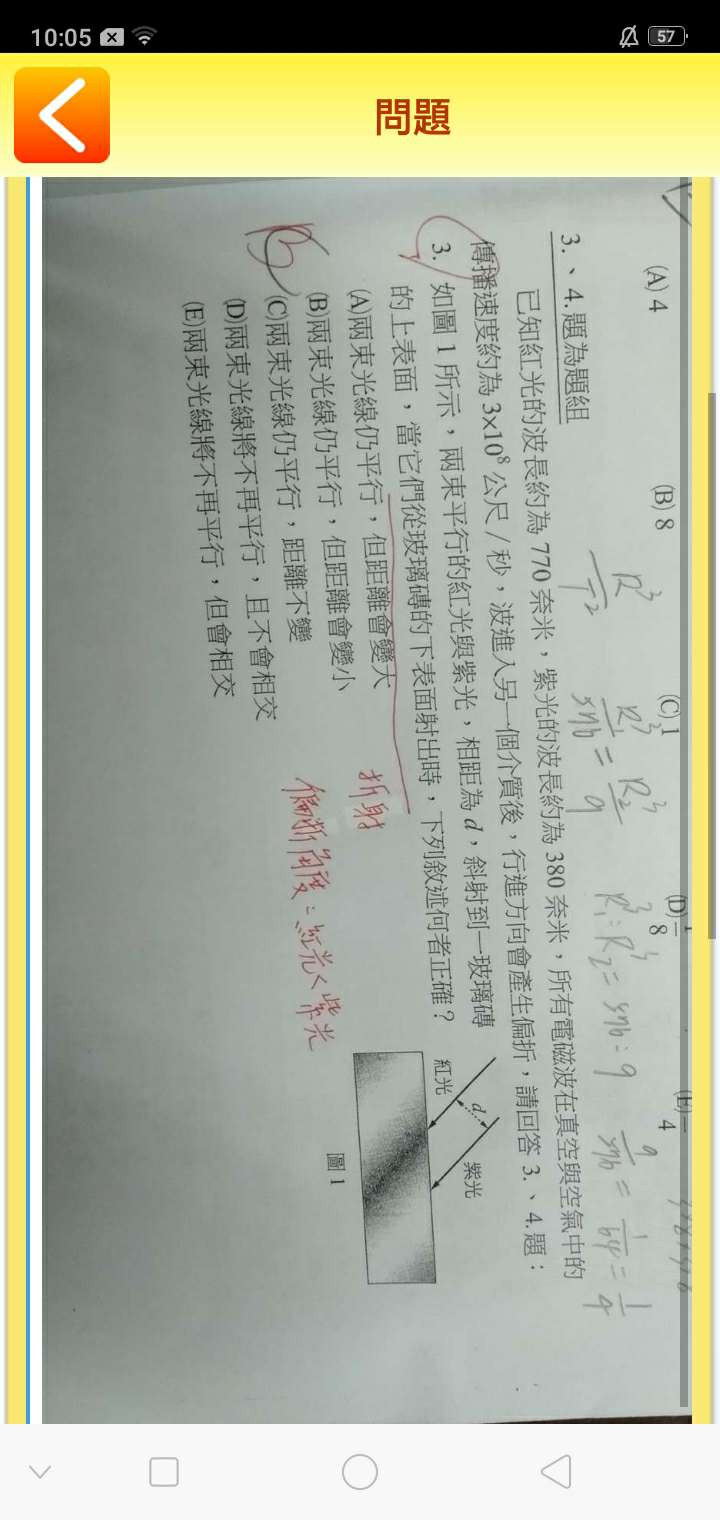 10:05
57
問題
(A) 4 (B) 8 (C) 1 (D) 1/8 (E) 1/4
3.、4.題為題組
已知紅光的波長約為 770 奈米，紫光的波長約為 380 奈米，所有電磁波在真空與空氣中的
傳播速度約為 3×10⁸ 公尺／秒，波進入另一個介質後，行進方向會產生偏折，請回答 3.、4.題：
3. 如圖 1 所示，兩束平行的紅光與紫光，相距為 d，斜射到一玻璃磚
的上表面，當它們從玻璃磚的下表面射出時，下列敘述何者正確？
(A)兩束光線仍平行，但距離會變大
(B)兩束光線仍平行，但距離會變小
(C)兩束光線仍平行，距離不變
(D)兩束光線將不再平行，且不會相交
(E)兩束光線將不再平行，但會相交
B
折射
偏折角度：紅光<紫光
紅光
d
紫光
圖 1